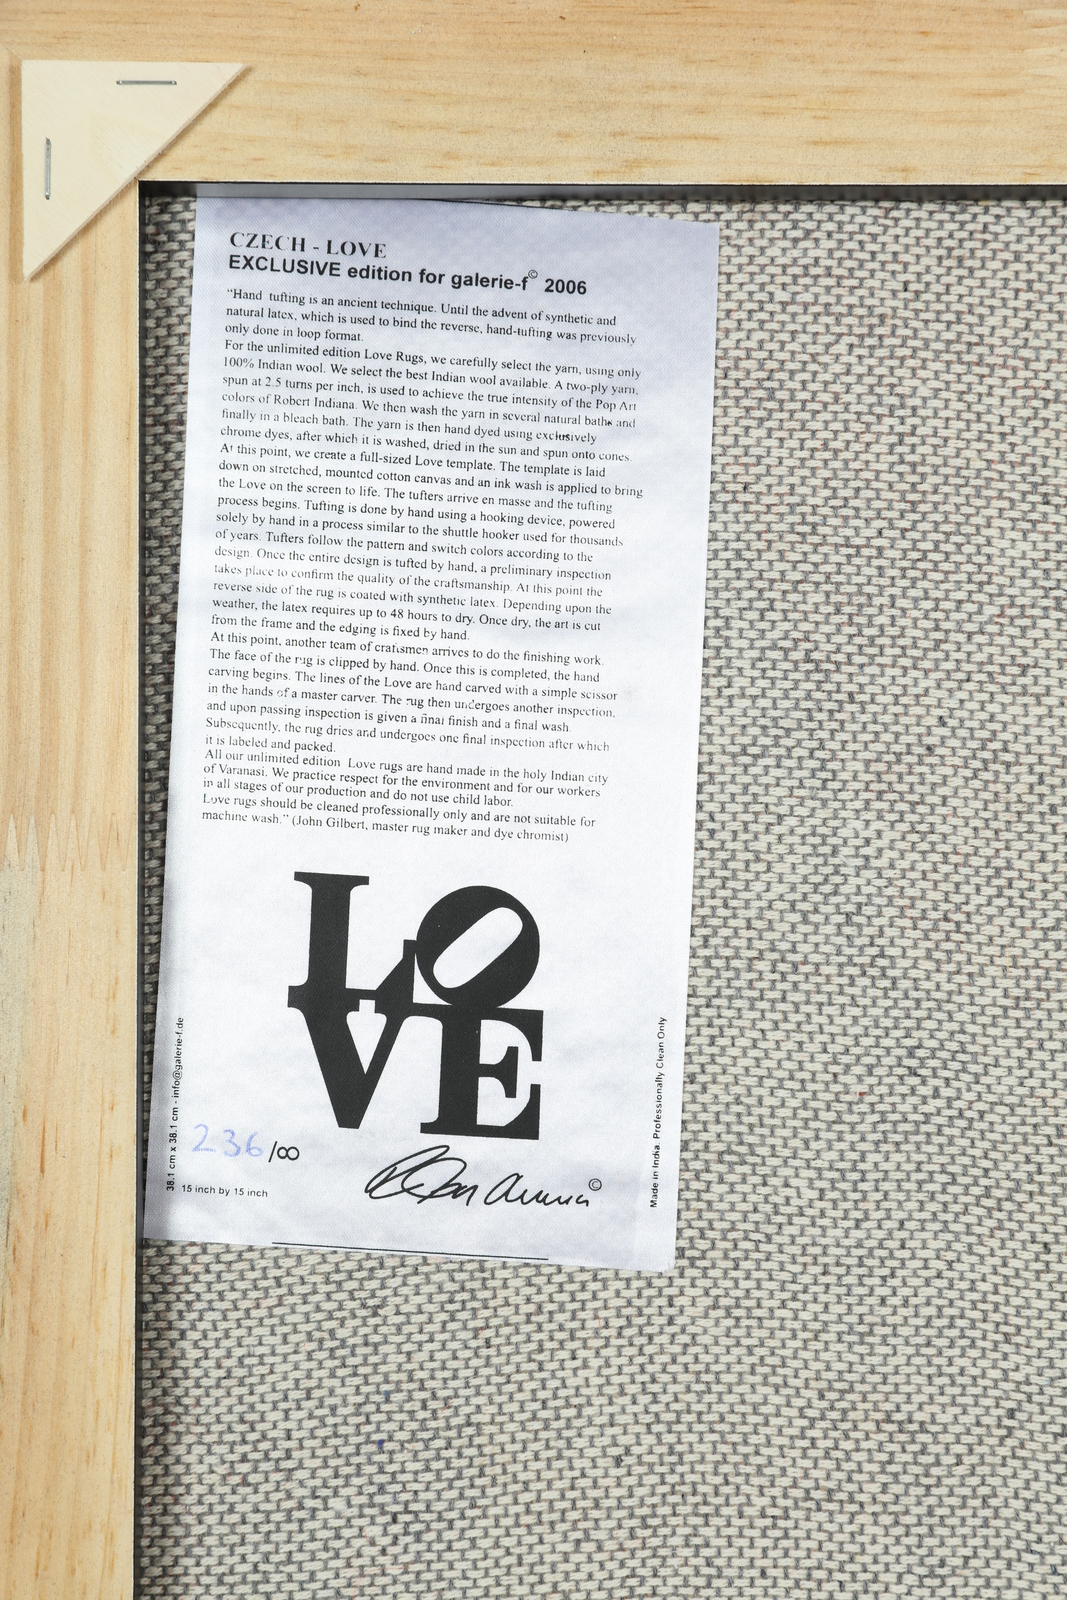 CZECH - LOVE
EXCLUSIVE edition for galerie-f© 2006
“Hand tufting is an ancient technique. Until the advent of synthetic and
natural latex, which is used to bind the reverse, hand-tufting was previously
only done in loop format.
For the unlimited edition Love Rugs, we carefully select the yarn, using only
100% Indian wool. We select the best Indian wool available. A two-ply yarn,
spun at 2.5 turns per inch, is used to achieve the true intensity of the Pop Art
colors of Robert Indiana. We then wash the yarn in several natural baths and
finally in a bleach bath. The yarn is then hand dyed using exclusively
chrome dyes, after which it is washed, dried in the sun and spun onto cones.
At this point, we create a full-sized Love template. The template is laid
down on stretched, mounted cotton canvas and an ink wash is applied to bring
the Love on the screen to life. The tufters arrive en masse and the tufting
process begins. Tufting is done by hand using a hooking device, powered
solely by hand in a process similar to the shuttle hooker used for thousands
of years. Tufters follow the pattern and switch colors according to the
design. Once the entire design is tufted by hand, a preliminary inspection
takes place to confirm the quality of the craftsmanship. At this point the
reverse side of the rug is coated with synthetic latex. Depending upon the
weather, the latex requires up to 48 hours to dry. Once dry, the art is cut
from the frame and the edging is fixed by hand.
At this point, another team of craftsmen arrives to do the finishing work.
The face of the rug is clipped by hand. Once this is completed, the hand
carving begins. The lines of the Love are hand carved with a simple scissor
in the hands of a master carver. The rug then undergoes another inspection,
and upon passing inspection is given a final finish and a final wash.
Subsequently, the rug dries and undergoes one final inspection after which
it is labeled and packed.
All our unlimited edition Love rugs are hand made in the holy Indian city
of Varanasi. We practice respect for the environment and for our workers
in all stages of our production and do not use child labor.
Love rugs should be cleaned professionally only and are not suitable for
machine wash.” (John Gilbert, master rug maker and dye chromist)
LO
VE
236/∞
©
15 inch by 15 inch
38.1 cm x 38.1 cm - info@galerie-f.de
Made in India. Professionally Clean Only